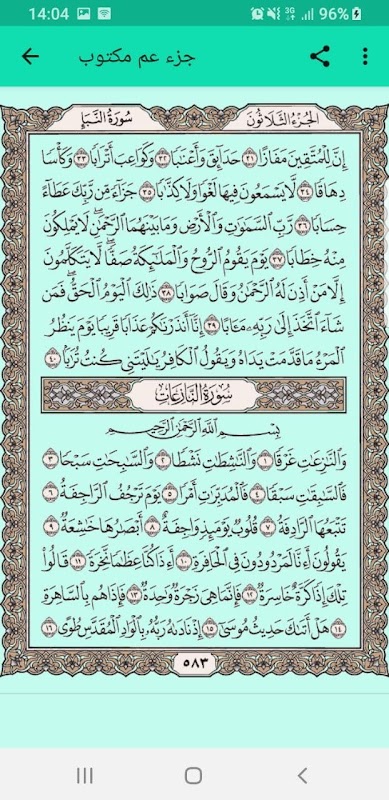 14:04
3G
96%
جزء عم مكتوب
الجزء الثلاثون
سورة النبإ
إِنَّ لِلْمُتَّقِينَ مَفَازًا ٣١ حَدَآئِقَ وَأَعْنَٰبًا ٣٢ وَكَوَاعِبَ أَتْرَابًا ٣٣ وَكَأْسًا
دِهَاقًا ٣٤ لَّا يَسْمَعُونَ فِيهَا لَغْوًا وَلَا كِذَّٰبًا ٣٥ جَزَآءً مِّن رَّبِّكَ عَطَآءً
حِسَابًا ٣٦ رَّبِّ ٱلسَّمَٰوَٰتِ وَٱلْأَرْضِ وَمَا بَيْنَهُمَا ٱلرَّحْمَٰنِ ۖ لَا يَمْلِكُونَ
مِنْهُ خِطَابًا ٣٧ يَوْمَ يَقُومُ ٱلرُّوحُ وَٱلْمَلَٰٓئِكَةُ صَفًّا ۖ لَّا يَتَكَلَّمُونَ
إِلَّا مَنْ أَذِنَ لَهُ ٱلرَّحْمَٰنُ وَقَالَ صَوَابًا ٣٨ ذَٰلِكَ ٱلْيَوْمُ ٱلْحَقُّ ۖ فَمَن
شَآءَ ٱتَّخَذَ إِلَىٰ رَبِّهِۦ مَـَٔابًا ٣٩ إِنَّآ أَنذَرْنَٰكُمْ عَذَابًا قَرِيبًا يَوْمَ يَنظُرُ
ٱلْمَرْءُ مَا قَدَّمَتْ يَدَاهُ وَيَقُولُ ٱلْكَافِرُ يَٰلَيْتَنِى كُنتُ تُرَٰبًۢا ٤٠
سورة النازعات
بِسْمِ ٱللَّهِ ٱلرَّحْمَٰنِ ٱلرَّحِيمِ
وَٱلنَّٰزِعَٰتِ غَرْقًا ١ وَٱلنَّٰشِطَٰتِ نَشْطًا ٢ وَٱلسَّٰبِحَٰتِ سَبْحًا ٣
فَٱلسَّٰبِقَٰتِ سَبْقًا ٤ فَٱلْمُدَبِّرَٰتِ أَمْرًا ٥ يَوْمَ تَرْجُفُ ٱلرَّاجِفَةُ ٦
تَتْبَعُهَا ٱلرَّادِفَةُ ٧ قُلُوبٌ يَوْمَئِذٍ وَاجِفَةٌ ٨ أَبْصَٰرُهَا خَٰشِعَةٌ ٩
يَقُولُونَ أَءِنَّا لَمَرْدُودُونَ فِى ٱلْحَافِرَةِ ١٠ أَءِذَا كُنَّا عِظَٰمًا نَّخِرَةً ١١ قَالُوا۟
تِلْكَ إِذًا كَرَّةٌ خَاسِرَةٌ ١٢ فَإِنَّمَا هِىَ زَجْرَةٌ وَٰحِدَةٌ ١٣ فَإِذَا هُم بِٱلسَّاهِرَةِ
١٤ هَلْ أَتَىٰكَ حَدِيثُ مُوسَىٰٓ ١٥ إِذْ نَادَىٰهُ رَبُّهُۥ بِٱلْوَادِ ٱلْمُقَدَّسِ طُوًى ١٦
٥٨٣